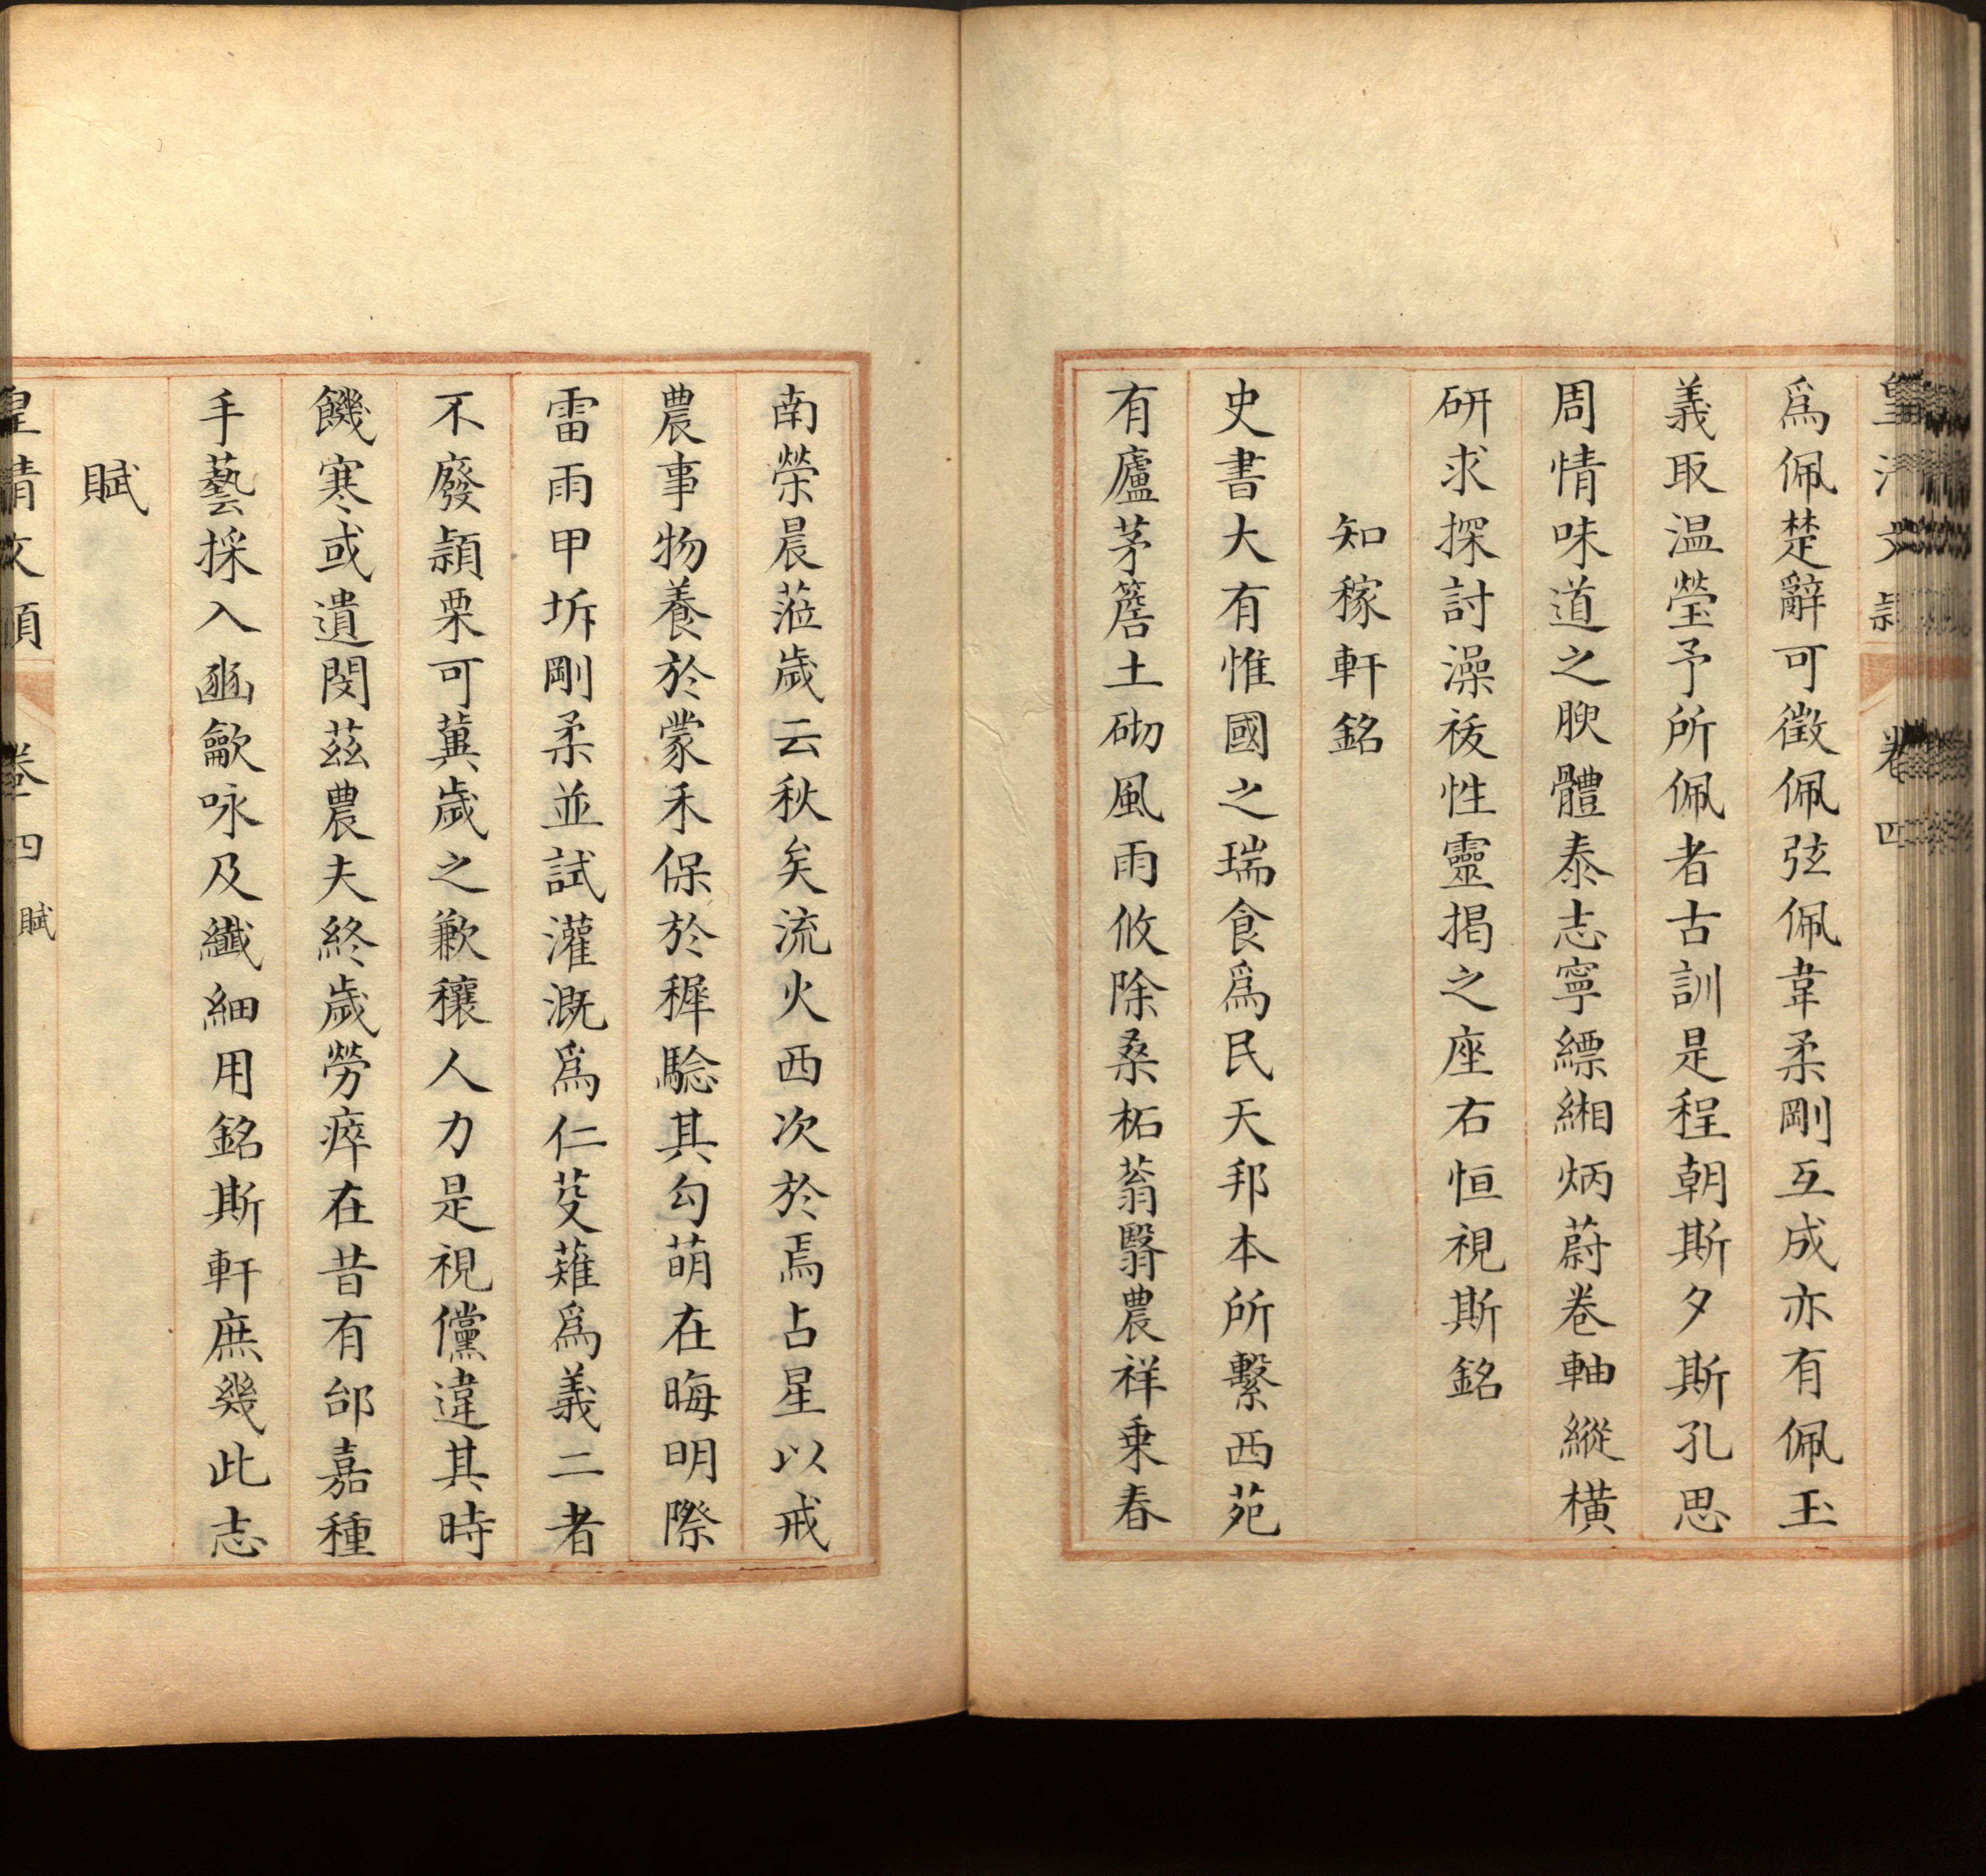 皇清文穎 卷四
爲佩楚辭可徵佩弦佩韋柔剛互成亦有佩玉
義取温瑩予所佩者古訓是程朝斯夕斯孔思
周情味道之腴體泰志寧縹緗炳蔚卷軸縱橫
研求探討澡祓性靈揭之座右恒視斯銘
知稼軒銘
史書大有惟國之瑞食爲民天邦本所繫西苑
有廬茅簷土砌風雨攸除桑柘蓊翳農祥乗春
南榮晨蒞歲云秋矣流火西次於焉占星以戒
農事物養於蒙禾保於穉驗其勾萌在晦明際
雷雨甲坼剛柔並試灌溉爲仁芟薙爲義二者
不廢穎栗可冀歲之歉穰人力是視儻違其時
饑寒或遺閔茲農夫終歲勞瘁在昔有邰嘉種
手藝採入豳龡咏及纖細用銘斯軒庶幾此志
賦
皇清文穎 卷四 賦